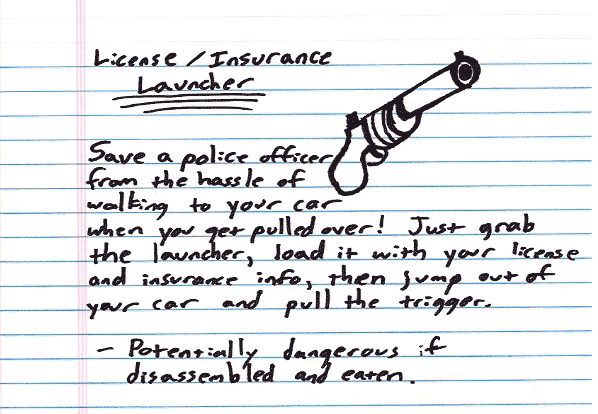 License / Insurance
Launcher
Save a police officer
from the hassle of
walking to your car
when you get pulled over! Just grab
the launcher, load it with your license
and insurance info, then jump out of
your car and pull the trigger.
- Potentially dangerous if
disassembled and eaten.